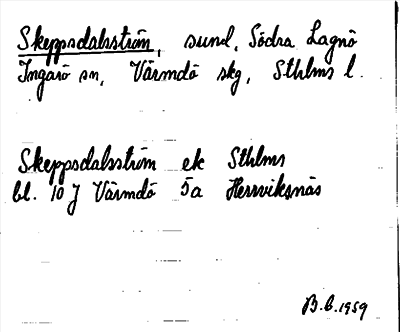 Skeppsdalsström, sund, Södra Lagnö
Ingarö sn, Värmdö skg, Sthlms l.
Skeppsdalsström ek Sthlms
bl. 10 J Värmdö 5a Herrviksnäs
B.C.1959